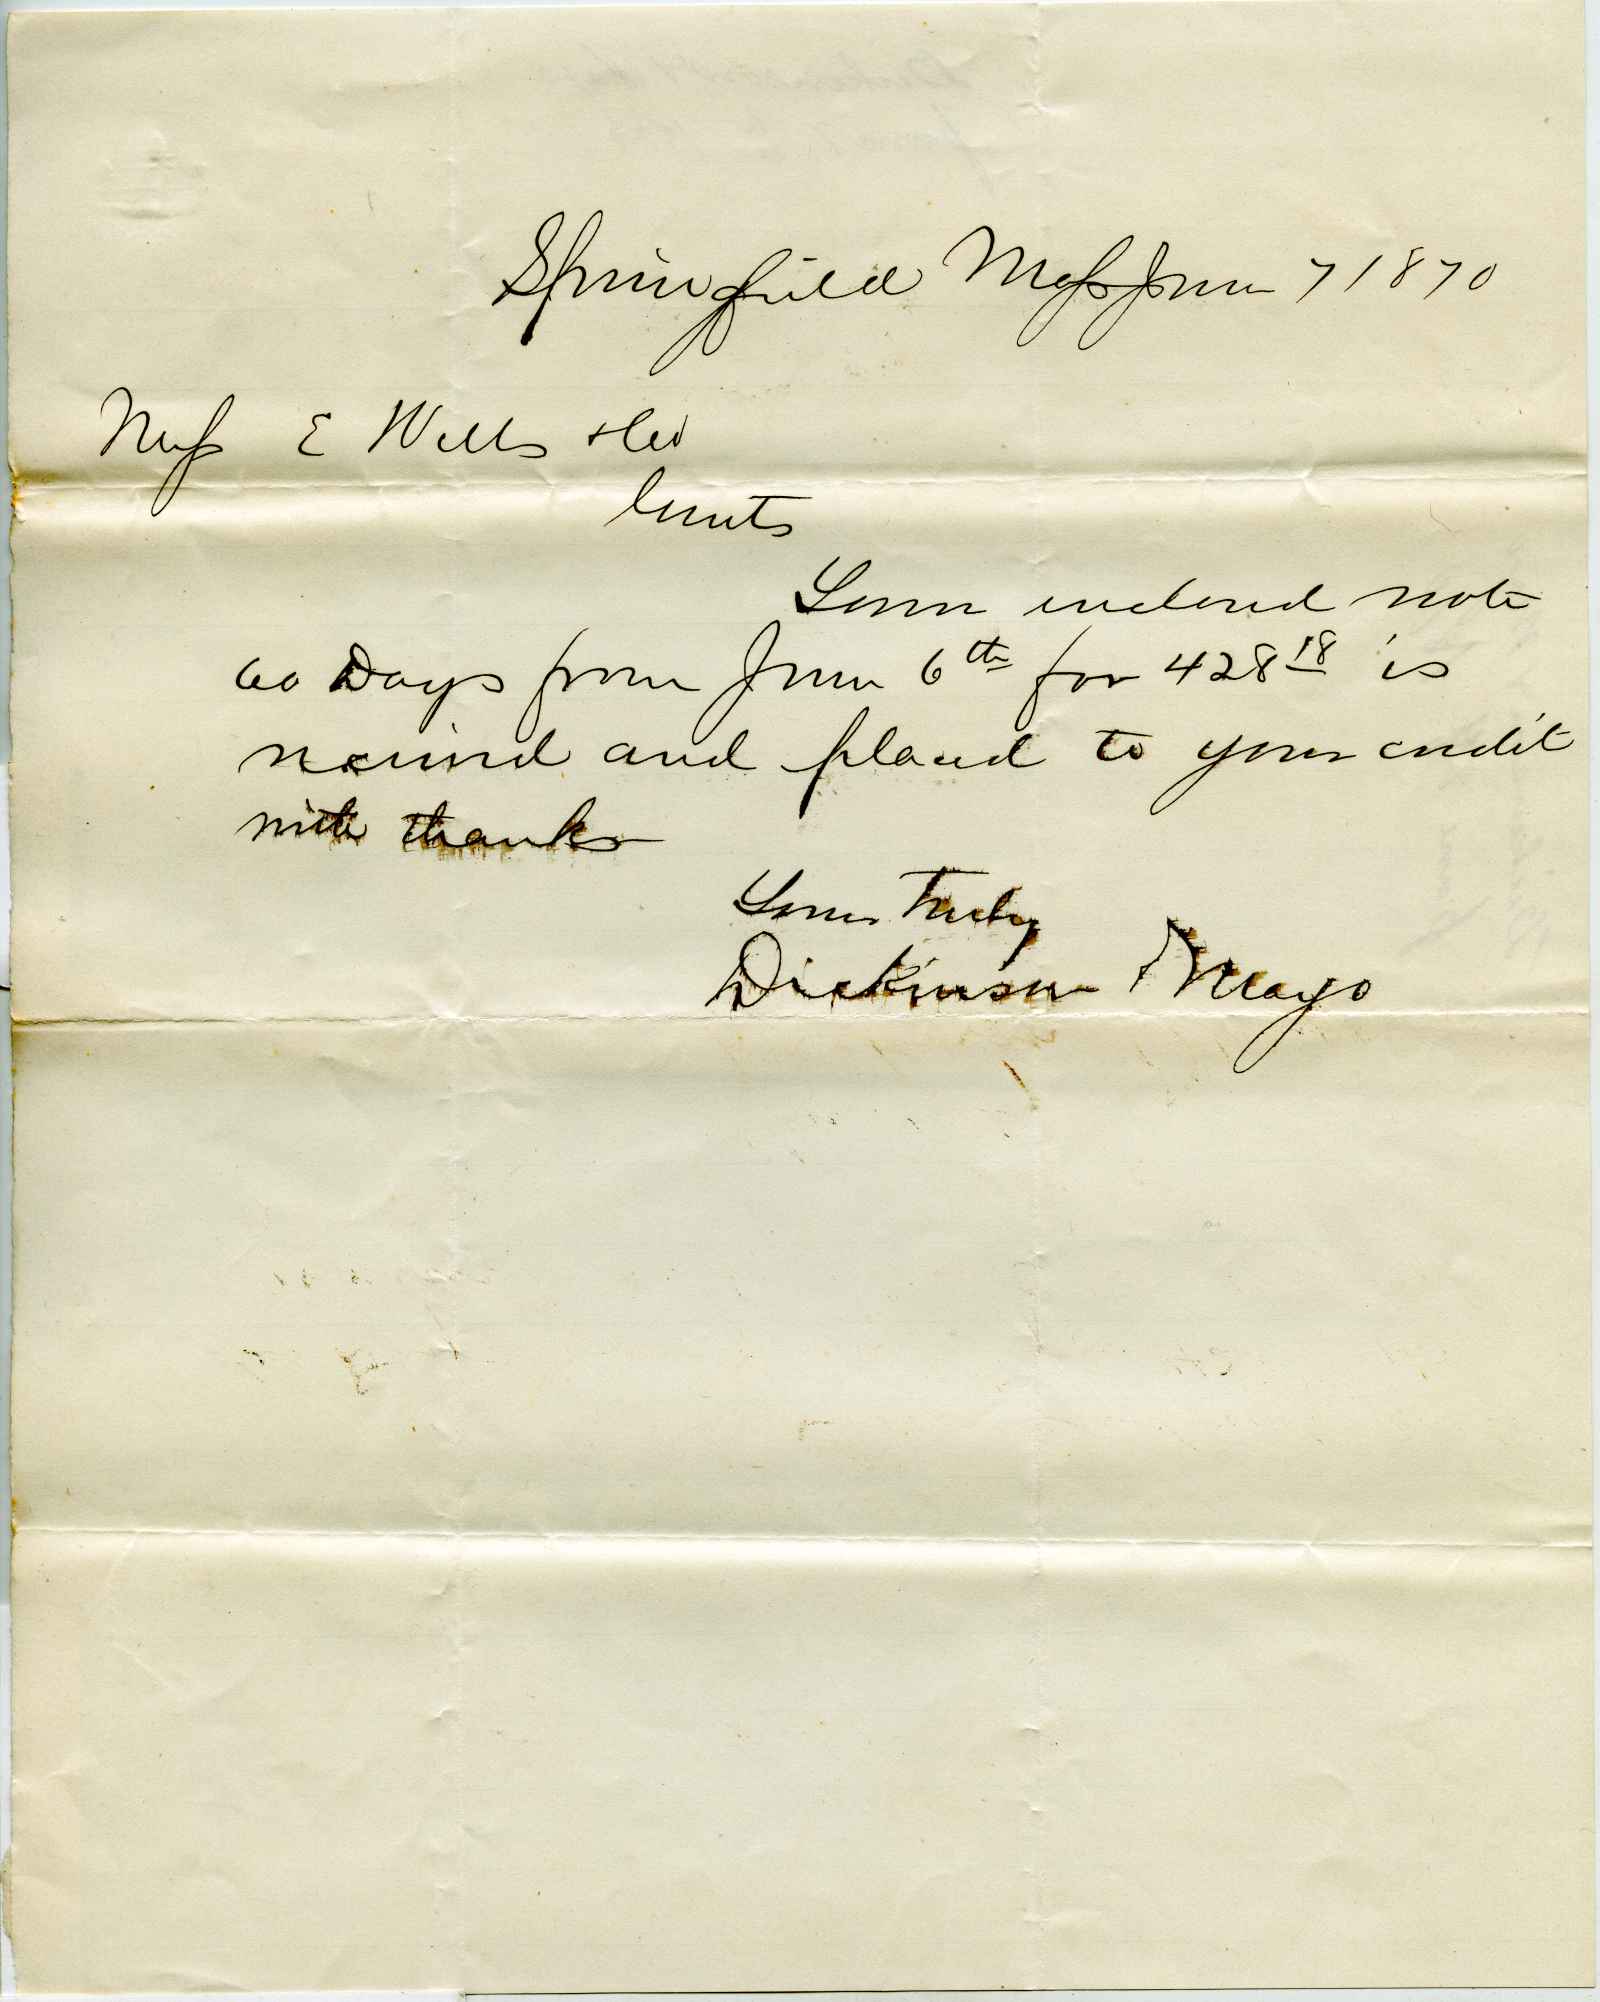 Springfield Mass June 7 1870
Mess E Wells & Co
Gents
Your endorsed note
60 Days from June 6th for 428 18 is
received and placed to your credit
with thanks
Yours Truly
Dickinson & Mayo